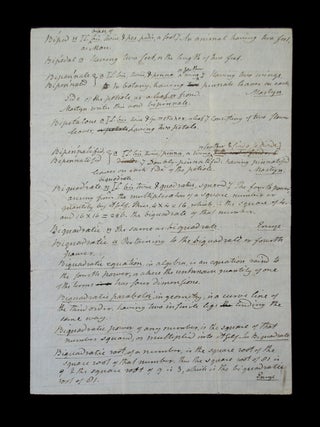 Biped n [L. bis, twice, & pes, pedis, a foot.] An animal having two feet,
as Man.
Bipedal a Having two feet, or the length of two feet.
Bipennate a [L. bis, twice & penna a wing.] Having two wings
Bipennated In botany, having pinnate leaves on each
side of the petiole as Martyn
Martyn writes this word bipinnate.
Bipetalous a [L. bis, twice, & Consisting of two flower
leaves, having two petals.
Bipennatifid
Bipennatifid Doubly pinnatifid, having pinnatifid
leaves on each side of the petiole. Martyn
Biquadrate
Biquadrate n [L. bis, twice & quadratus, squared.] The fourth power,
arising from the multiplication of a square number or
quantity by itself. Thus, 4 x 4 = 16 which is the square of 4,
and 16 x 16 = 256, the biquadrate of that number.
Biquadratic n the same as biquadrate. Encyc
Biquadratic a Pertaining to the biquadratic or fourth
power.
Biquadratic equation in algebra, is an equation raised to
the fourth power, or where the unknown quantity of one
of the terms has four dimensions.
Biquadratic parabola in geometry, is a curve line of
the third order, having two infinite legs tending the
same way.
Biquadratic power of any number, is the square of that
number squared, or multiplied into itself. See Biquadrate
Biquadratic root of a number, is the square root of the
square root of that number. Thus the square root of 81 is
9 & the square root of 9 is 3, which is the biquadratic
root of 81. Encyc